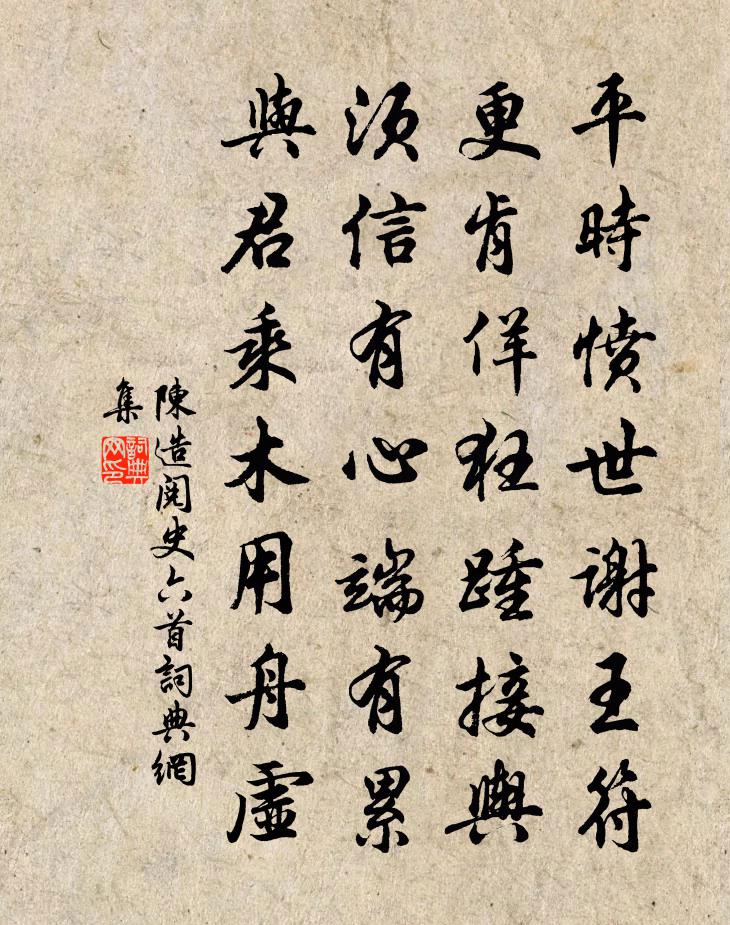 平時憤世謝王符
更肯佯狂踵接輿
須信有心端有累
與君乘木用舟虛
陳造閱史六首詞典網
集
詞典網印